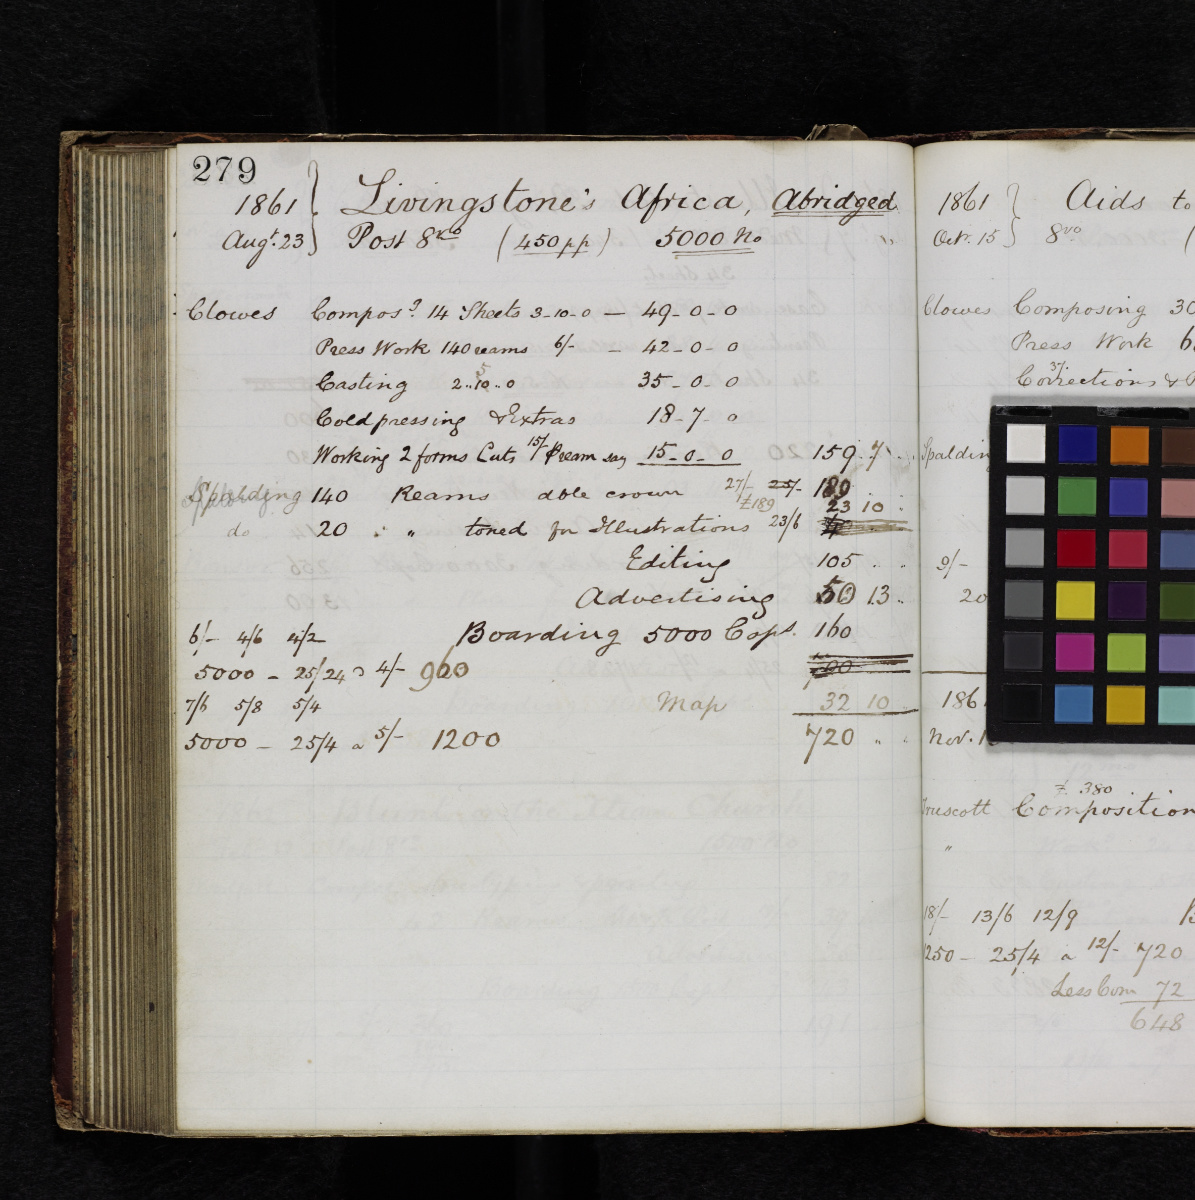 279
1861 } Livingstone's Africa, Abridged
Augt. 23 } Post 8vo (450 pp) 5000 No
Clowes Compos? 14 Sheets 3-10-0 — 49-0-0
Press Work 140 reams 6/- — 42-0-0
Casting 2..10..0 35-0-0
Coldpressing & Extras 18-7-0
Working 2 forms Cuts 15/ Pream say 15-0-0 159.7
Spalding 140 Reams dble crown 27/- 25/- 189
£189
do 20 " toned for Illustrations 23/6 23 10
Editing 105
Advertising 50 13
6/- 4/6 4/2 Boarding 5000 Cops. 160
5000 - 25/24 a 4/- 960
7/6 5/8 5/4 Map 32 10
5000 - 25/4 a 5/- 1200 720
1861 } Aids to
Octr. 15 } 8vo (
Clowes Composing 30
Press Work 6
Corrections &
Spalding
9/-
20
186
Nov. 1
£ 380
Truscott Composition
"
18/- 13/6 12/9 B
250 - 25/4 a 12/- 720
Less Com 72
648